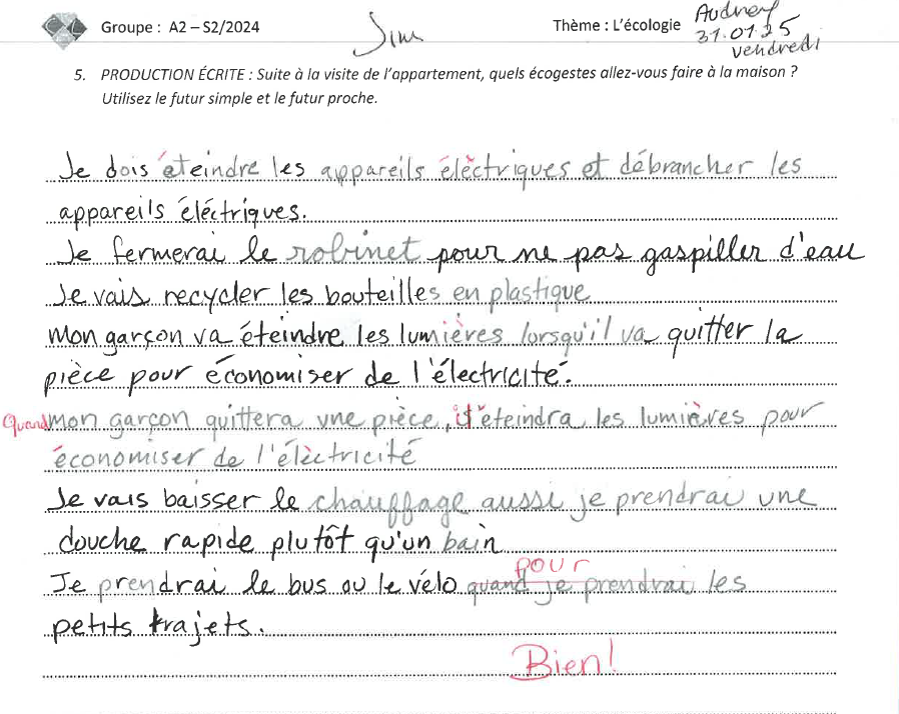 Groupe : A2 – S2/2024
Jim
Thème : L'écologie
Audrey
31.01.25
vendredi
5. PRODUCTION ÉCRITE : Suite à la visite de l'appartement, quels écogestes allez-vous faire à la maison ?
Utilisez le futur simple et le futur proche.
Je dois éteindre les appareils élèctriques et débrancher les
appareils éléctriques.
Je fermerai le robinet pour ne pas gaspiller d'eau
Je vais recycler les bouteilles en plastique
Mon garçon va éteindre les lumières lorsqu'il va quitter la
pièce pour économiser de l'électricité.
Quand mon garçon quittera une pièce, il éteindra les lumières pour
économiser de l'élèctricité
Je vais baisser le chauffage aussi je prendrai une
douche rapide plutôt qu'un bain
pour
Je prendrai le bus ou le vélo quand je prendrai les
petits trajets.
Bien!